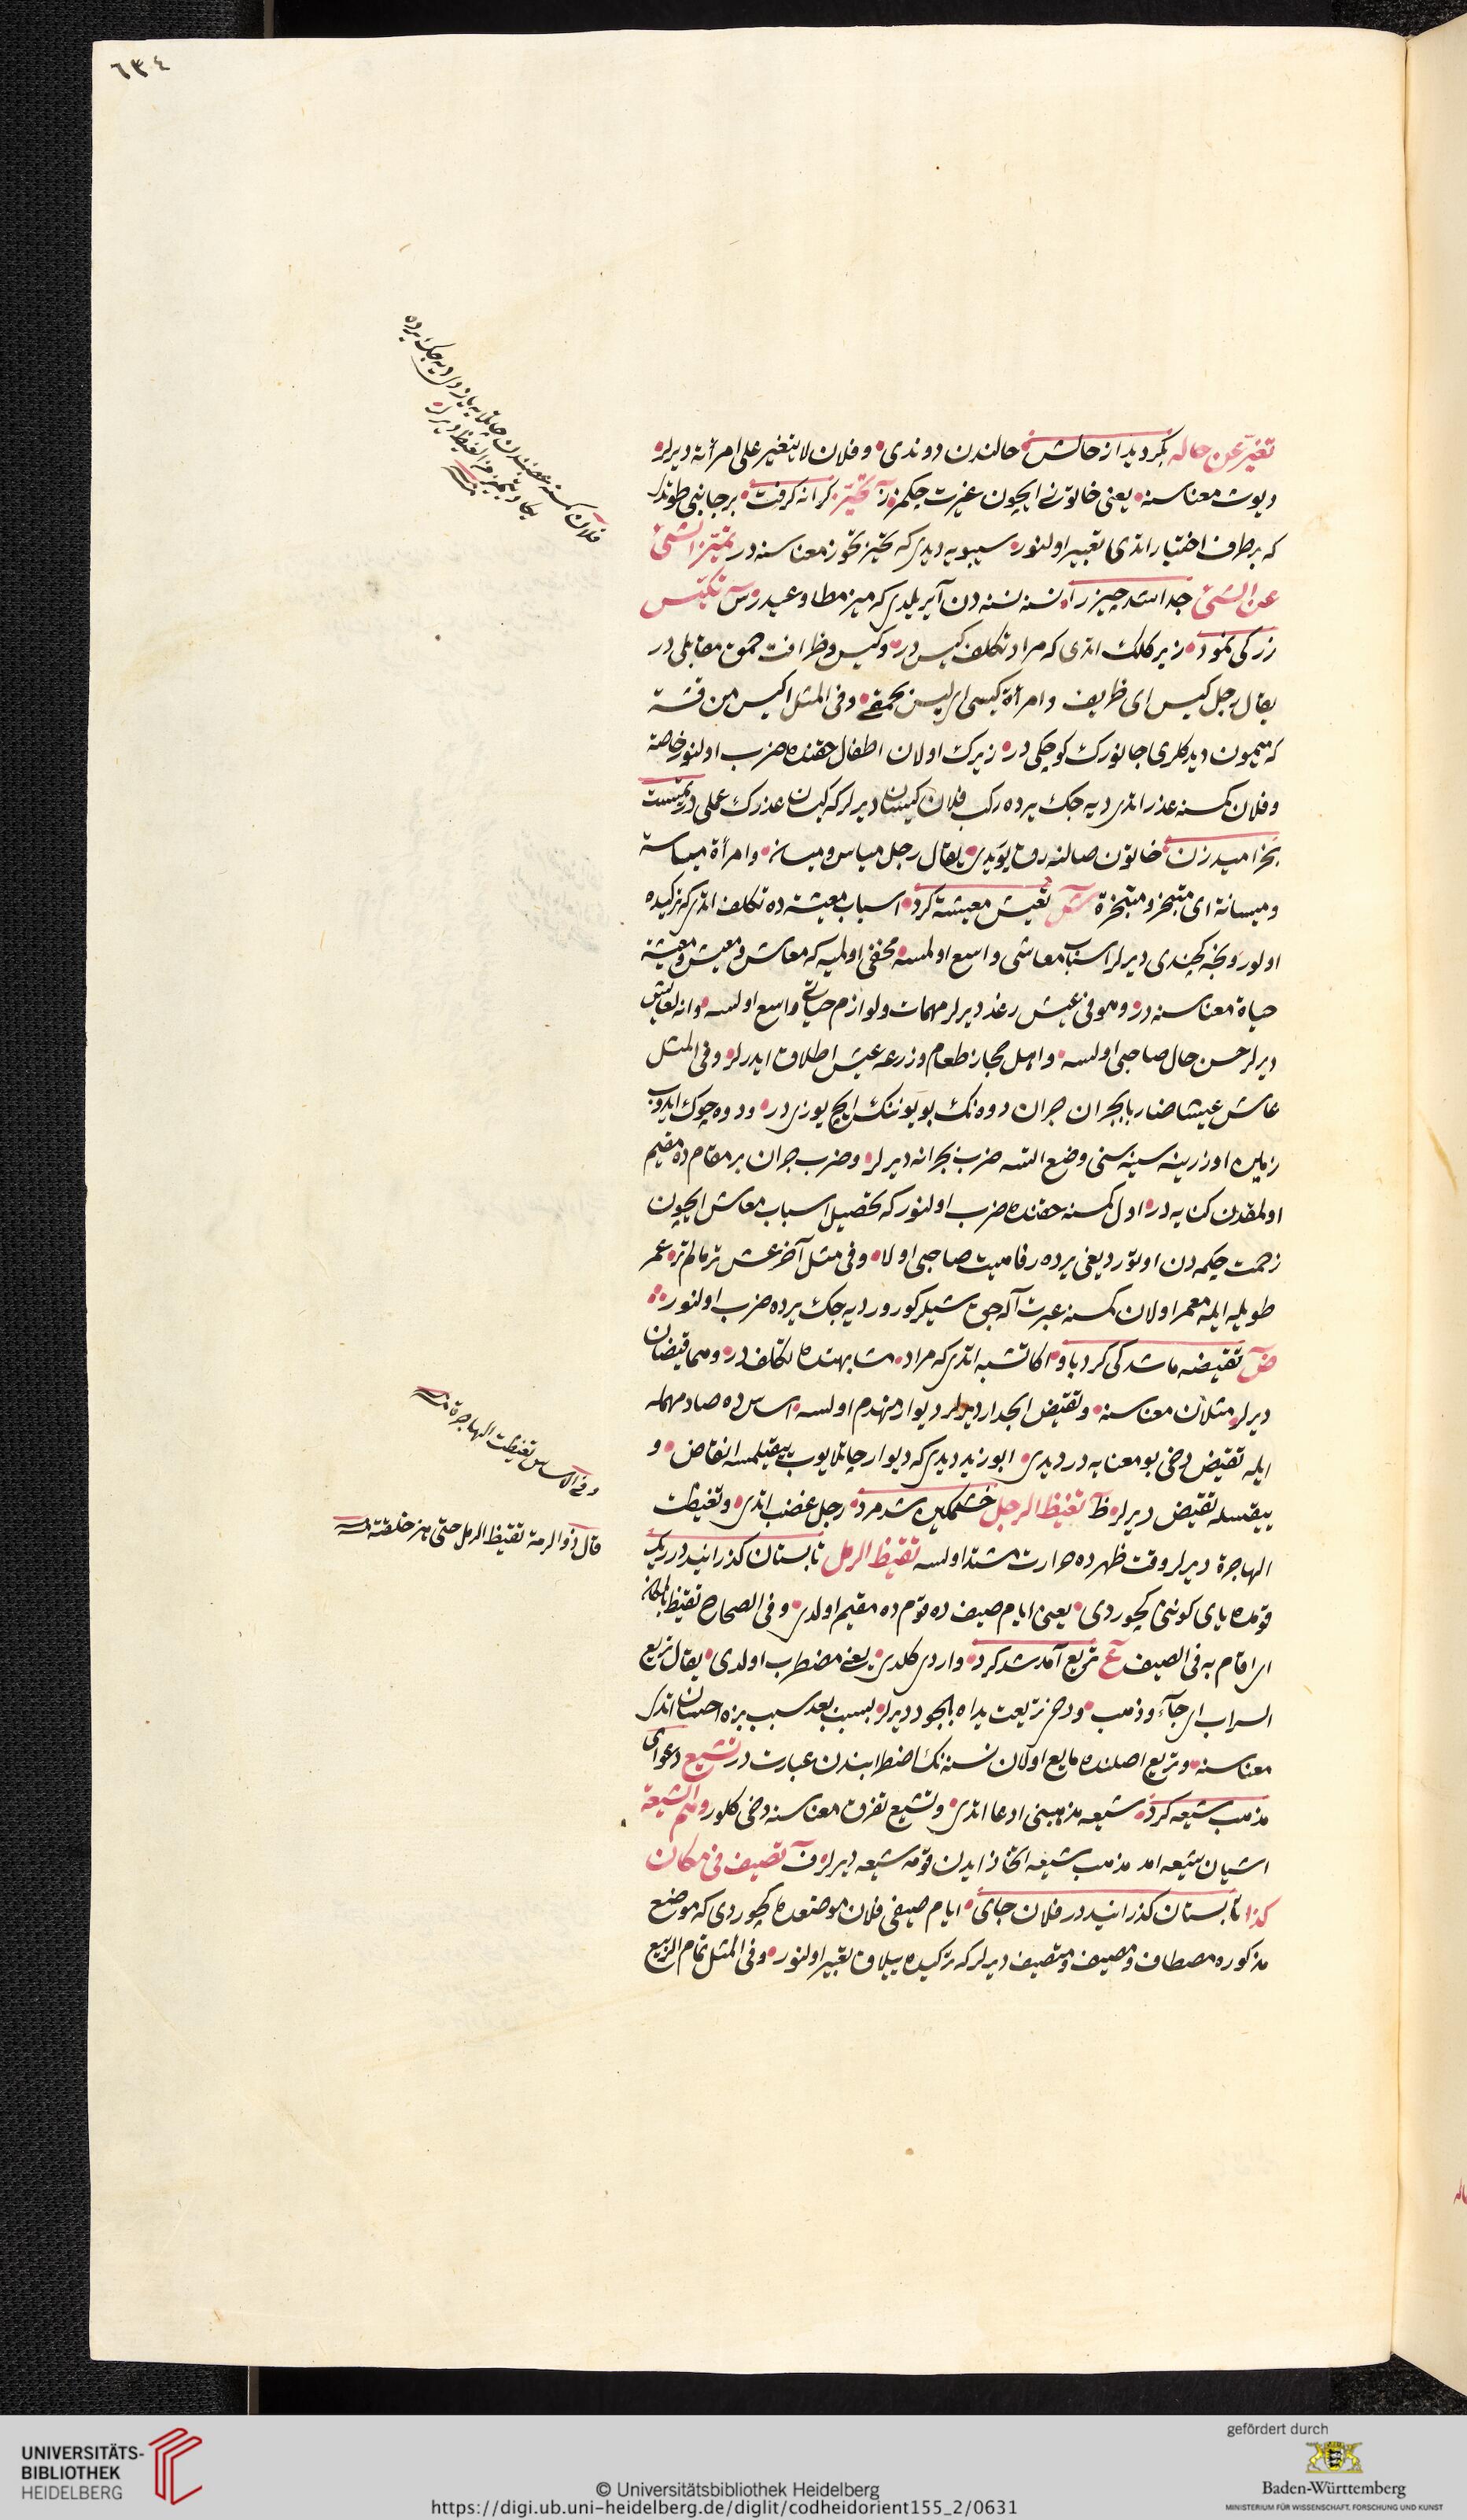 ٦٣٤
تغیّر عن حاله بکردید از حالش حالندن دوندی وفلان لا یتغیر علی امرأته دیرلر
دیوث معناسنه یعنی خاتونی ایچون غیرت چکمز ز تحیّز کرانه کرفت برجانبی طوتدی
که برطرف اختیار اتدی تعبیر اولنور سیبویه دیدی که تحیز تحوز معناسنه در تمیّز الشئ
عن الشئ جدا شد چیز را نسنه نسنه دن آیریلدی که میز مطاوعیدر س تکیّس
زرکی نمود زیرکلك اتدی که مراد تکلف کیس در وکیس وظرافت حمق مقابلی در
یقال رجل کیس ای ظریف وامرأة کیسی ای لیس بحمقی وفی المثل اکیس من قشة
که میمون دیدکلری جانورك کوچکی در زیرك اولان اطفال حقنده ضرب اولنور خاصة
وفلان کمسنه عذر اتدی دیه جك یرده رکب فلان کیسان دیرلر که کیسان عذرك علمی در تمیّست
بخرامید زن خاتون صالنه رق یویدی یقال رجل میاس ومیسان وامرأة میاسة
ومیسانة ای متبختر ومتبخترة ش تعیش معیشة کرد اسباب معیشة ده تکلف اتدی که ترکیده
اولور ویخه کچندی دیرلر اسباب معاشی واسع اولمسه مخفی اولمیه که معاش ومعیش ومعیشة
حیاة معناسنه در وهو فی عیش رغد دیرلر مهمات ولوازم حیاتی واسع اولسه وانه لعایش
دیرلر حسن حال صاحبی اولسه واهل حجاز طعام وزرعه عیش اطلاق ایدرلر وفی المثل
عاش عیشا ضاربا بجران جران دوه نك بوینونك ایچ یوزی در ودوه چوك ایدوب
زمین اوزرینه سینه سنی وضع اتسه ضرب بجرانه دیرلر وضرب جران بر مقام ده مقیم
اولمقدن کنایه در اول کمسنه حقنده ضرب اولنور که تحصیل اسباب معاش ایچون
زحمت چکمه دن اوتورد یعنی یرده رفاهیت صاحبی اولا وفی مثل آخر عش تر مالم تر عمر
طویله ایله معمر اولان کمسنه عبرت آله جق شیلر کورور دیه جك یرده ضرب اولنور
ض تقیضه ماشدکی کرد باو اکا تشبه اتدی که مراد مشابهتده تکلف در وهما قیضان
دیرلر مثلان معناسنه وتقیض الجدار دیرلر دیوار منهدم اولسه اساس ده صاد مهمله
ایله تقیص دخی بو معنایه در دیدی ابوزید دیدی که دیوار چاتلایوب ییقیلمسه انقاض و
ییقسه تقیض دیرلر ظ تغیظ الرجل خشمکین شد مرد رجل غضب اتدی وتغیظت
الهاجرة دیرلر وقت ظهرده حرارت مشتد اولسه تقیظ الرمل تابستان کذرانید در ریك
قومده یای کوننی کچوردی یعنی ایام صیف ده قوم ده مقیم اولدی وفی الصحاح تقیظ بالمکان
ای اقام به فی الصیف ع تریع آمدشد کرد واردی کلدی یعنی مضطرب اولدی یقال تریع
السراب ای جاء وذهب ودخی تریعت یداه بالجود دیرلر سیب بعد سیب بزه احسان اتدی
معناسنه وتریع اصلنده مایع اولان نسنه نك اضطرابندن عبارت در تشیع دعوای
مذهب شیعه کرد شیعه مذهبینی ادعا اتدی وتشیع تفرق معناسنه دخی کلور وهم الشیعة
مذهب شیعه اتخاذ ایدن قومه شیعه دیرلر ف تصیف فی مکان
کذا تابستان کذرانید در فلان جای ایام صیفی فلان موضعده کچوردی که موضع
مذکوره مصطاف ومصیف ومتصیف دیرلر که ترکیده ییلاق تعبیر اولنور وفی المثل تمام الربیع
وفی الاساس تغیظت الهاجرة منه
قال ذو الرمة تقیظ الرمل حتی هز خلفته منه
UNIVERSITÄTS-
BIBLIOTHEK
HEIDELBERG
© Universitätsbibliothek Heidelberg
https://digi.ub.uni-heidelberg.de/diglit/codheidorient155_2/0631
gefördert durch
Baden-Württemberg
MINISTERIUM FÜR WISSENSCHAFT, FORSCHUNG UND KUNST